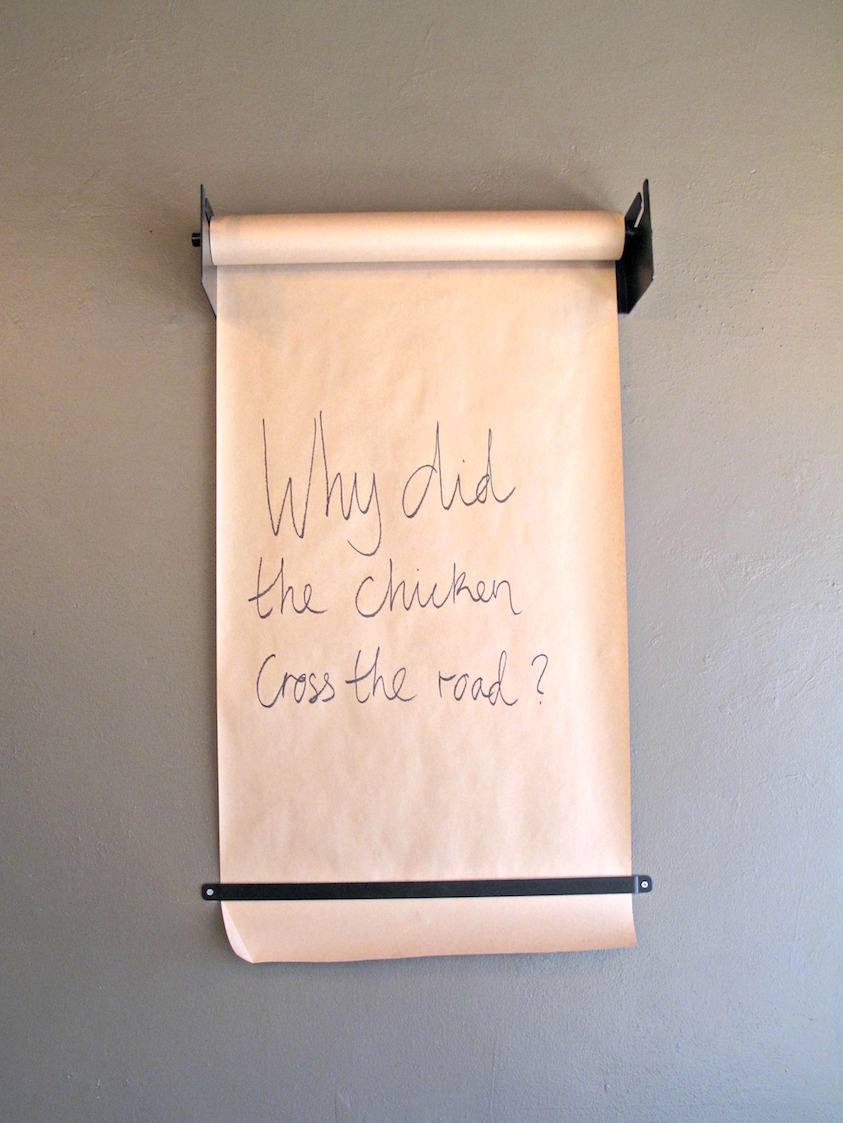 Why did
the chicken
Cross the road?